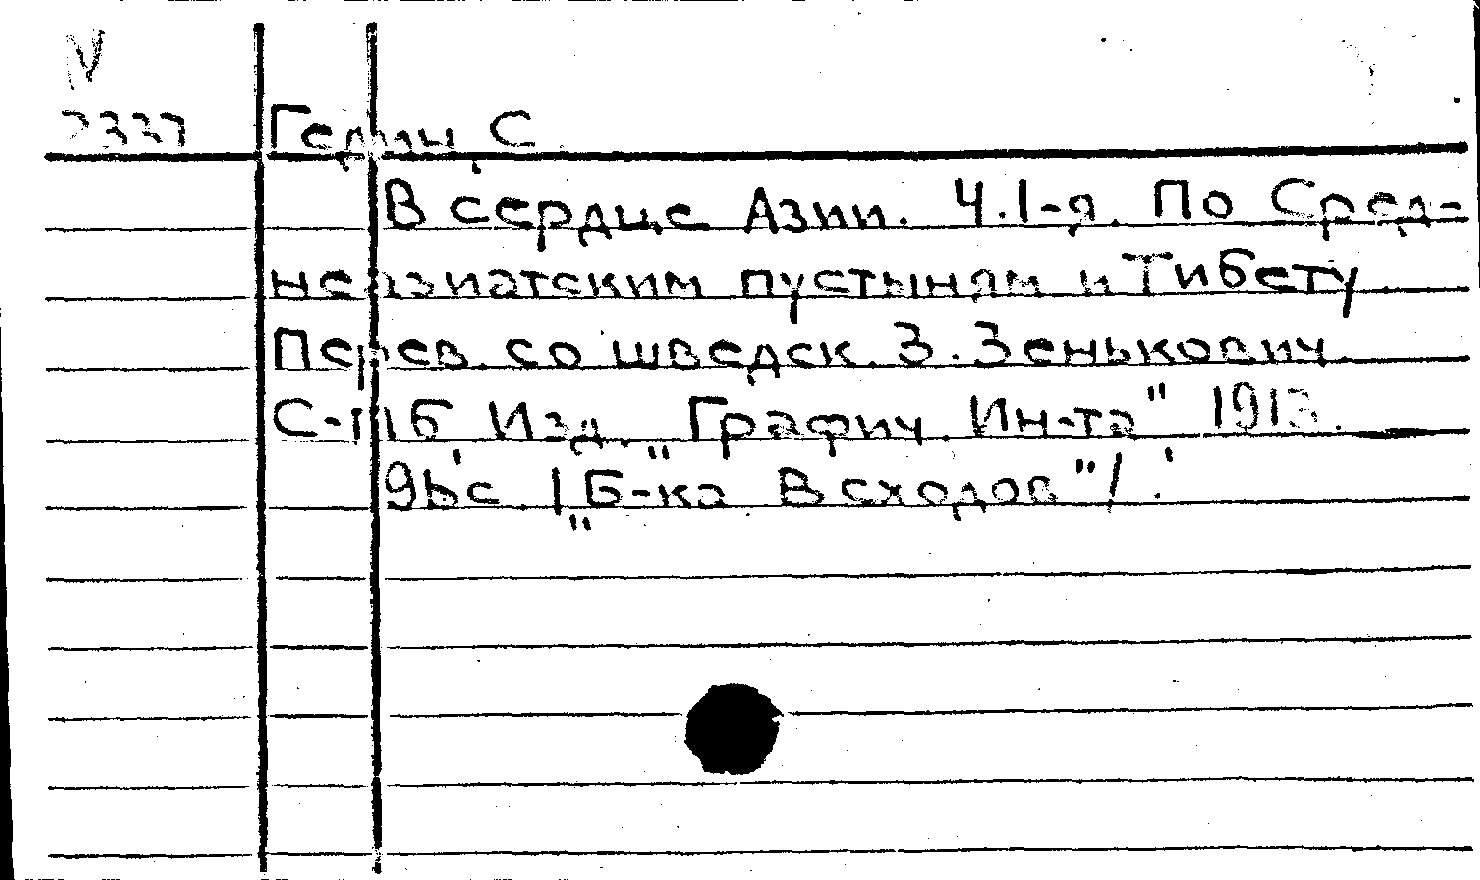 N
2337 Гедин, С
В сердце Азии. Ч.1-я. По Сред-
неазиатским пустыням и Тибету
Перев. со шведск. З. Зенькович.
С-Пб Изд. „Графич. Ин-та" 1913.
96 с. /„Б-ка Всходов"/.